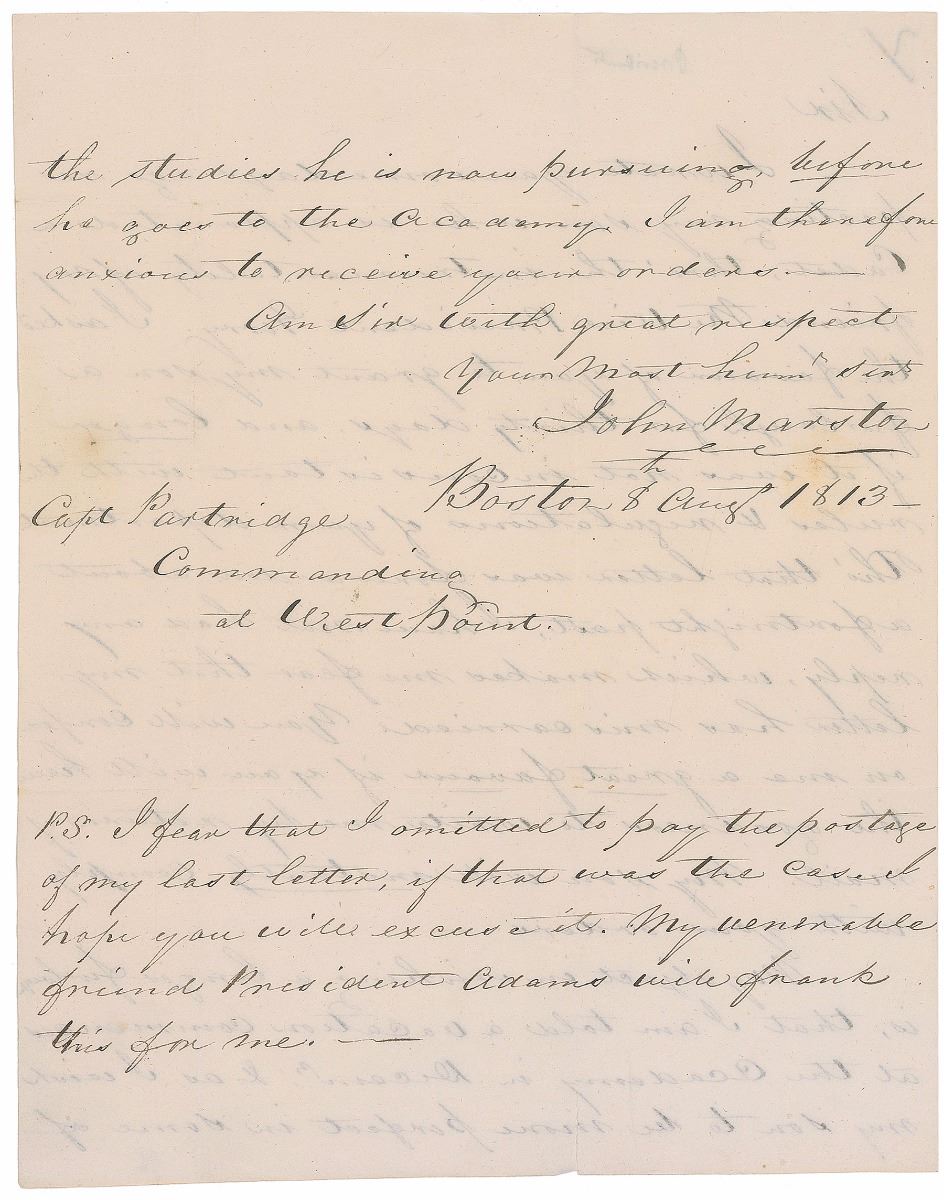 the studies he is now pursuing, before
he goes to the Academy. I am therefore
anxious to receive your orders. —
Am Sir with great respect
Your Most humᵉ Servᵗ
John Marston
Boston 8ᵗʰ Augᵗ 1813 —
Capt Partridge
Commanding
at West Point.
P.S. I fear that I omitted to pay the postage
of my last letter, if that was the case, I
hope you will excuse it. My venerable
friend President Adams will frank
this for me. —